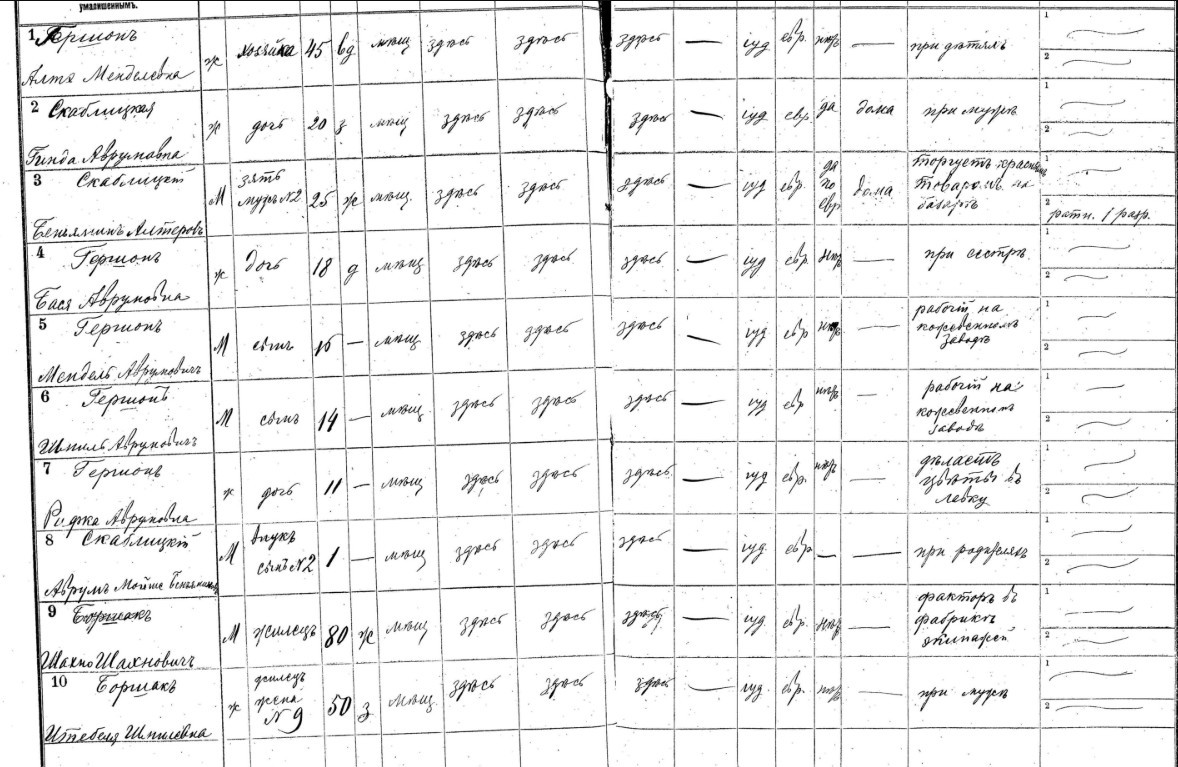 умалишеннымъ.
1 Гершонъ
Алта Менделевна
ж хозяйка 45 вд мѣщ здѣсь здѣсь здѣсь — іуд евр. нгр — при дѣтяхъ 1 2
2 Скаблицкая
Гинда Аврумовна
ж дочь 20 з мѣщ здѣсь здѣсь здѣсь — іуд евр. да дома при мужѣ 1 2
3 Скаблицкій
Беньяминъ Алтеровъ
М зять
мужъ №2 25 ж мѣщ здѣсь здѣсь здѣсь — іуд евр.
да
по
евр дома
торгуетъ красным
товаромъ на
базарѣ
1
2 ратн. 1 разр.
4 Гершонъ
Бася Аврумовна
ж дочь 18 д мѣщ здѣсь здѣсь здѣсь — іуд евр. нгр — при сестрѣ 1 2
5 Гершонъ
Мендель Аврумовичъ
М сынъ — мѣщ здѣсь здѣсь здѣсь — іуд евр нгр —
рабочій на
кожевенномъ
заводѣ
1 2
6 Гершонъ
Шмиль Аврумовичъ
М сынъ 14 — мѣщ здѣсь здѣсь здѣсь — іуд евр нгр —
рабочій на
кожевенномъ
заводѣ
1 2
7 Гершонъ
Рифка Аврумовна
ж дочь 11 — мѣщ здѣсь здѣсь здѣсь — іуд евр. нгр —
дѣлаетъ
цвѣты въ
1 2
8 Скаблицкій
Аврумъ Мойше
М внукъ
сынъ №2 1 — мѣщ здѣсь здѣсь здѣсь — іуд евр — — при родителяхъ 1 2
9 Боршакъ
Шахно Шахновичъ
М жилецъ 80 ж мѣщ здѣсь здѣсь здѣсь — іуд евр. нгр —
факторъ въ
фабрикѣ
экипажей
1 2
10 Боршакъ
Шмилевна
ж жилецъ
жена
№9 50 з мѣщ здѣсь здѣсь здѣсь — іуд евр. нгр — при мужѣ 1 2